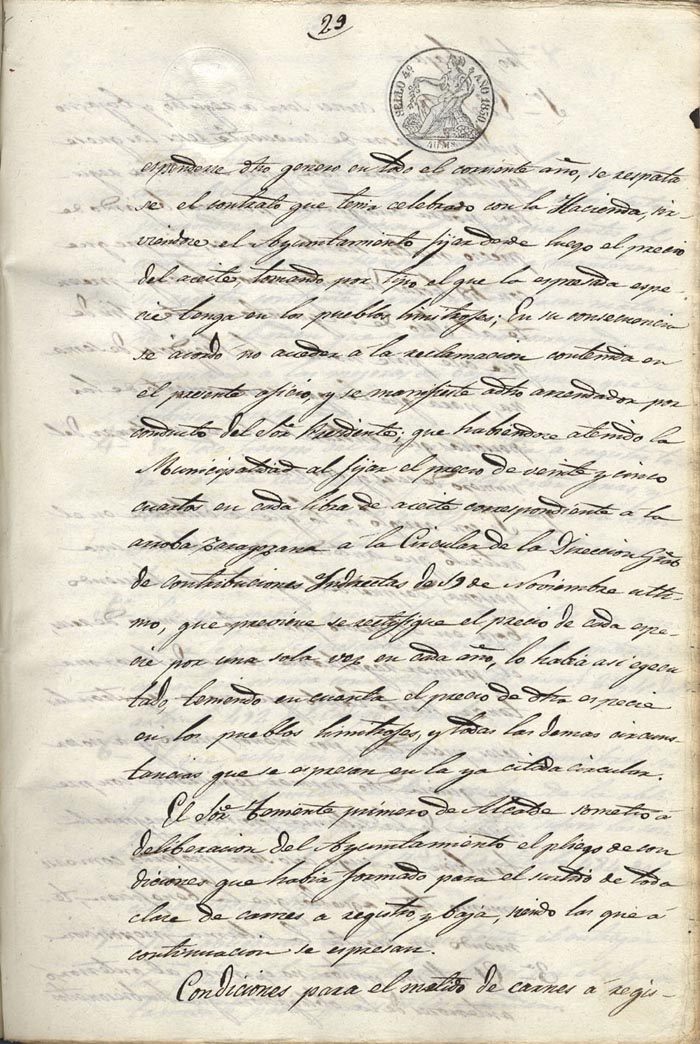 29
SELLO 4º AÑO 1850.
40 MS.
espenderse dho genero en todo el corriente año, se respeta
se el contrato que tenia celebrado con la Hacienda, sir-
viendose el Ayuntamiento fijar desde luego el precio
del aceite, tomando por tipo el que la espresada espe-
cie tenga en los pueblos limitrofes; En su consecuencia
se acordó no acceder á la reclamacion contenida en
el presente oficio, y se manifieste adho arrendador por
conducto del Sor. Presidente; que habiendose atenido la
Municipalidad al fijar el precio de veinte y cinco
cuartos en cada libra de aceite correspondiente a la
arroba Zaragozana a la Circular de la Direccion Gral
de contribuciones Indirectas de 19 de Noviembre ulti-
mo, que previene se rectifique el precio de cada espe-
cie por una sola vez en cada año, lo habia asi egecu
tado, teniendo en cuenta el precio de dha especie
en los pueblos limitrofes, y todas las demas circuns-
tancias que se espresan en la ya citada circular.
El Sor. Teniente primero de Alcalde sometio á
deliberacion del Ayuntamiento el pliego de con
diciones que habia formado para el surtido de toda
clase de carnes a registro y baja, siendo las que á
continuacion se espresan.
Condiciones para el metido de carnes á regis-